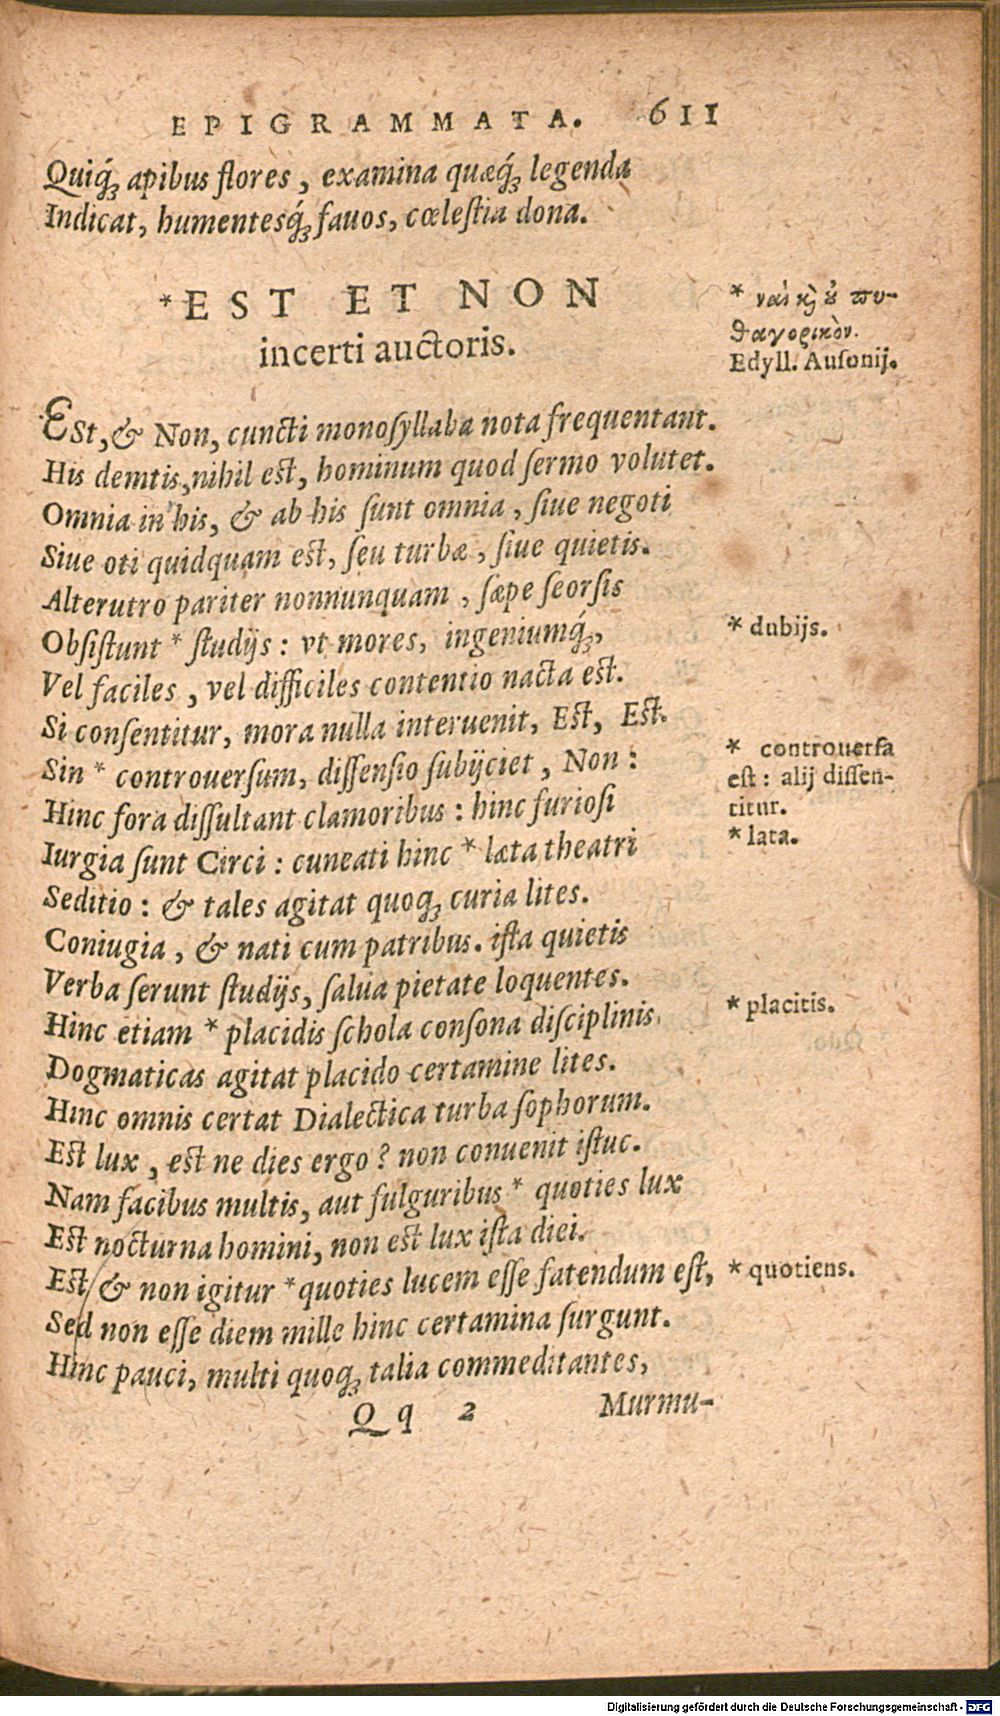 EPIGRAMMATA. 611
Quiq́ꝫ apibus flores, examina quæq́ꝫ legenda
Indicat, humentesq́ꝫ fauos, cœleſtia dona.
*EST ET NON
incerti auctoris.
* ναὶ κὶ ȣ̓ πυ-
θαγορικὸν.
Edyll. Auſonij.
Eſt, & Non, cuncti monoſyllaba nota frequentant.
His demtis, nihil eſt, hominum quod ſermo volutet.
Omnia in his, & ab his ſunt omnia, ſiue negoti
Siue oti quidquam eſt, ſeu turbæ, ſiue quietis.
Alterutro pariter nonnunquam, ſæpe ſeorſis
Obſiſtunt * ſtudijs: vt mores, ingeniumq́ꝫ,
* dubijs.
Vel faciles, vel difficiles contentio nacta eſt.
Si conſentitur, mora nulla interuenit, Eſt, Eſt.
Sin * controuerſum, diſſenſio ſubijciet, Non:
* controuerſa
eſt: alij diſſen-
titur.
Hinc fora diſſultant clamoribus: hinc furioſi
Iurgia ſunt Circi: cuneati hinc * læta theatri
* lata.
Seditio: & tales agitat quoqꝫ curia lites.
Coniugia, & nati cum patribus. iſta quietis
Verba ſerunt ſtudijs, ſalua pietate loquentes.
Hinc etiam * placidis ſchola conſona diſciplinis
* placitis.
Dogmaticas agitat placido certamine lites.
Hinc omnis certat Dialectica turba ſophorum.
Eſt lux, eſt ne dies ergo? non conuenit iſtuc.
Nam facibus multis, aut fulguribus * quoties lux
Eſt nocturna homini, non eſt lux iſta diei.
Eſt & non igitur * quoties lucem eſſe fatendum eſt,
* quotiens.
Sed non eſſe diem mille hinc certamina ſurgunt.
Hinc pauci, multi quoqꝫ talia commeditantes,
Qq 2 Murmu-
Digitalisierung gefördert durch die Deutsche Forschungsgemeinschaft - DFG